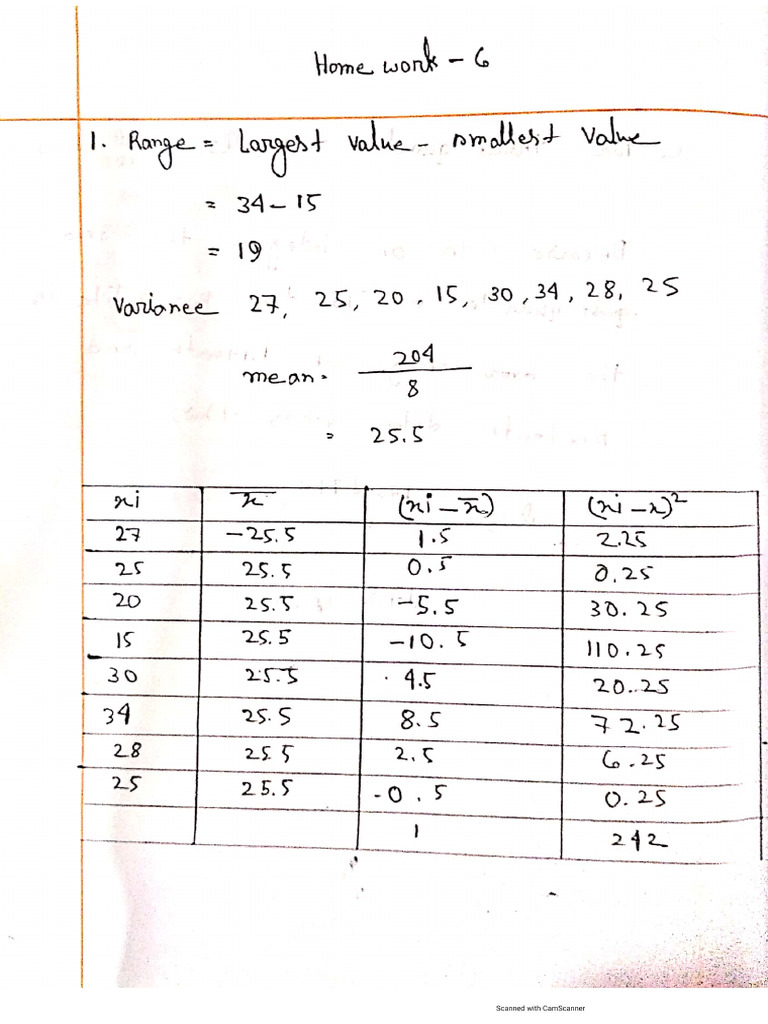 Home work - 6
1. Range = Largest value - smallest value
= 34 - 15
= 19
Variance 27, 25, 20, 15, 30, 34, 28, 25
mean = 204
8
= 25.5
xi x̄ (xi - x̄) (xi - x)²
27 -25.5 1.5 2.25
25 25.5 0.5 0.25
20 25.5 -5.5 30.25
15 25.5 -10.5 110.25
30 25.5 4.5 20.25
34 25.5 8.5 72.25
28 25.5 2.5 6.25
25 25.5 -0.5 0.25
1 242
Scanned with CamScanner